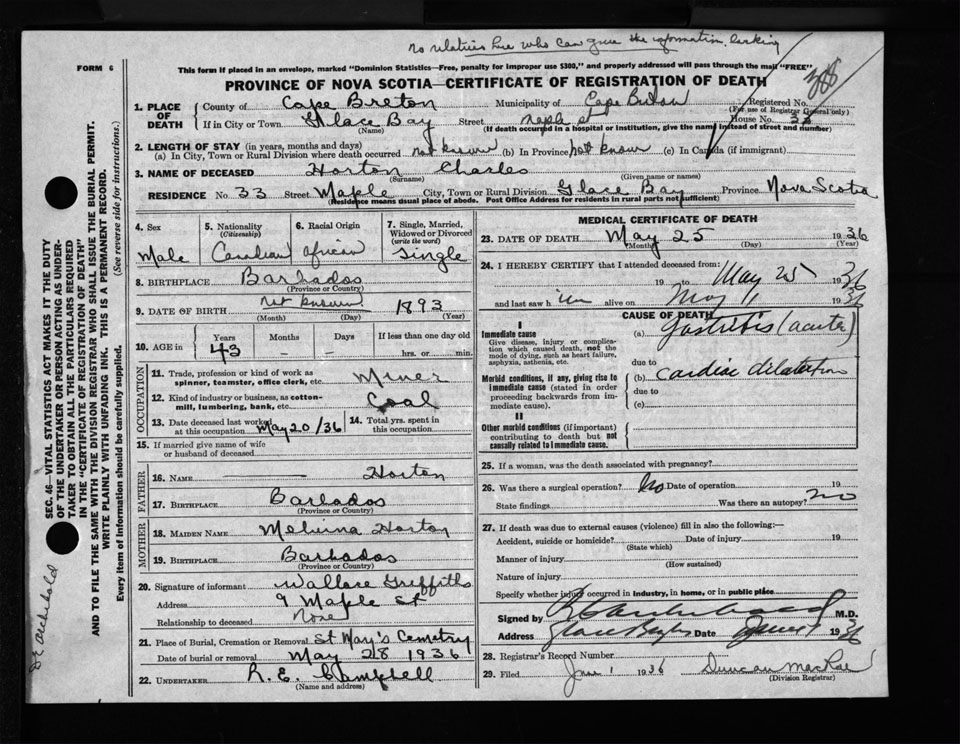 no relatives here who can give the information lacking
FORM 6
This form if placed in an envelope, marked "Dominion Statistics—Free, penalty for improper use $300," and properly addressed will pass through the mail "FREE"
PROVINCE OF NOVA SCOTIA—CERTIFICATE OF REGISTRATION OF DEATH
1. PLACE OF DEATH
County of Cape Breton Municipality of Cape Breton Registered No.
(For use of Registrar General only)
If in City or Town Glace Bay Street Maple St House No. 33
(Name) (If death occurred in a hospital or institution, give the name instead of street and number)
2. LENGTH OF STAY (in years, months and days)
(a) In City, Town or Rural Division where death occurred not known (b) In Province not known (c) In Canada (if immigrant)
3. NAME OF DECEASED Horton Charles
(Surname) (Given name or names)
RESIDENCE No. 33 Street Maple City, Town or Rural Division Glace Bay Province Nova Scotia
(Residence means usual place of abode. Post Office Address for residents in rural parts not sufficient)
4. Sex Male
5. Nationality (Citizenship) Canadian
6. Racial Origin African
7. Single, Married, Widowed or Divorced (write the word) Single
8. BIRTHPLACE Barbados
(Province or Country)
9. DATE OF BIRTH not known 1893
(Month) (Day) (Year)
10. AGE in Years 43 Months – Days – If less than one day old hrs. or min.
OCCUPATION
11. Trade, profession or kind of work as spinner, teamster, office clerk, etc. Miner
12. Kind of industry or business, as cotton-mill, lumbering, bank, etc. Coal
13. Date deceased last worked at this occupation May 20/36
14. Total yrs. spent in this occupation
15. If married give name of wife or husband of deceased
FATHER
16. NAME — Horton
17. BIRTHPLACE Barbados
(Province or Country)
MOTHER
18. MAIDEN NAME Melvina Horton
19. BIRTHPLACE Barbados
(Province or Country)
20. Signature of informant Wallace Griffiths
Address 9 Maple St
Relationship to deceased None
21. Place of Burial, Cremation or Removal St Mary's Cemetry
Date of burial or removal May 28 1936
22. UNDERTAKER R. E. Campbell
(Name and address)
MEDICAL CERTIFICATE OF DEATH
23. DATE OF DEATH May 25 1936
(Month) (Day) (Year)
24. I HEREBY CERTIFY that I attended deceased from:
19 to May 25 1936
and last saw him alive on May 1936
CAUSE OF DEATH
I
Immediate cause
Give disease, injury or complication which caused death, not the mode of dying, such as heart failure, asphyxia, asthenia, etc.
(a) Gastritis (acute)
due to
Morbid conditions, if any, giving rise to immediate cause (stated in order proceeding backwards from immediate cause).
(b) cardiac dilatation
due to
(c)
II
Other morbid conditions (if important) contributing to death but not causally related to immediate cause.
25. If a woman, was the death associated with pregnancy?
26. Was there a surgical operation? No Date of operation 19
State findings Was there an autopsy? no
27. If death was due to external causes (violence) fill in also the following:—
Accident, suicide or homicide? Date of injury 19
(State which)
Manner of injury
(How sustained)
Nature of injury
Specify whether injury occurred in industry, in home, or in public place
Signed by M.D.
Address Glace Bay Date June 1 1936
28. Registrar's Record Number
29. Filed June 1 1936 Duncan MacRae
(Division Registrar)
SEC. 46—VITAL STATISTICS ACT MAKES IT THE DUTY
OF THE UNDERTAKER OR PERSON ACTING AS UNDER-
TAKER TO OBTAIN ALL THE PARTICULARS REQUIRED
IN THE "CERTIFICATE OF REGISTRATION OF DEATH"
AND TO FILE THE SAME WITH THE DIVISION REGISTRAR WHO SHALL ISSUE THE BURIAL PERMIT.
WRITE PLAINLY WITH UNFADING INK. THIS IS A PERMANENT RECORD.
Every item of information should be carefully supplied. (See reverse side for instructions.)
Dr Archibald